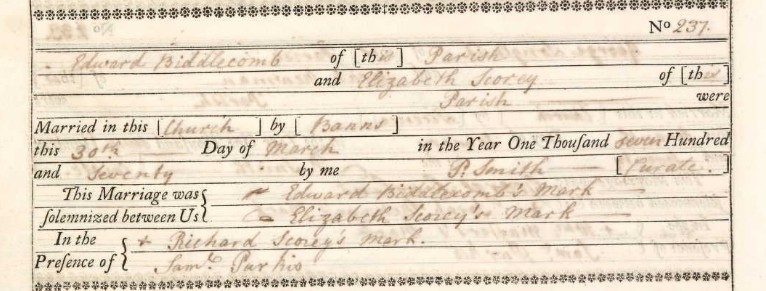 No 237.
Edward Biddlecomb of [this] Parish
and Elizabeth Scorey of [this]
Parish were
Married in this [Church] by [Banns]
this 30th Day of March in the Year One Thousand seven Hundred
and Seventy by me P. Smith [Curate.]
This Marriage was solemnized between Us { Edward Biddlecomb's Mark
Elizabeth Scorey's Mark
In the Presence of { + Richard Scorey's Mark.
Saml. Purkis